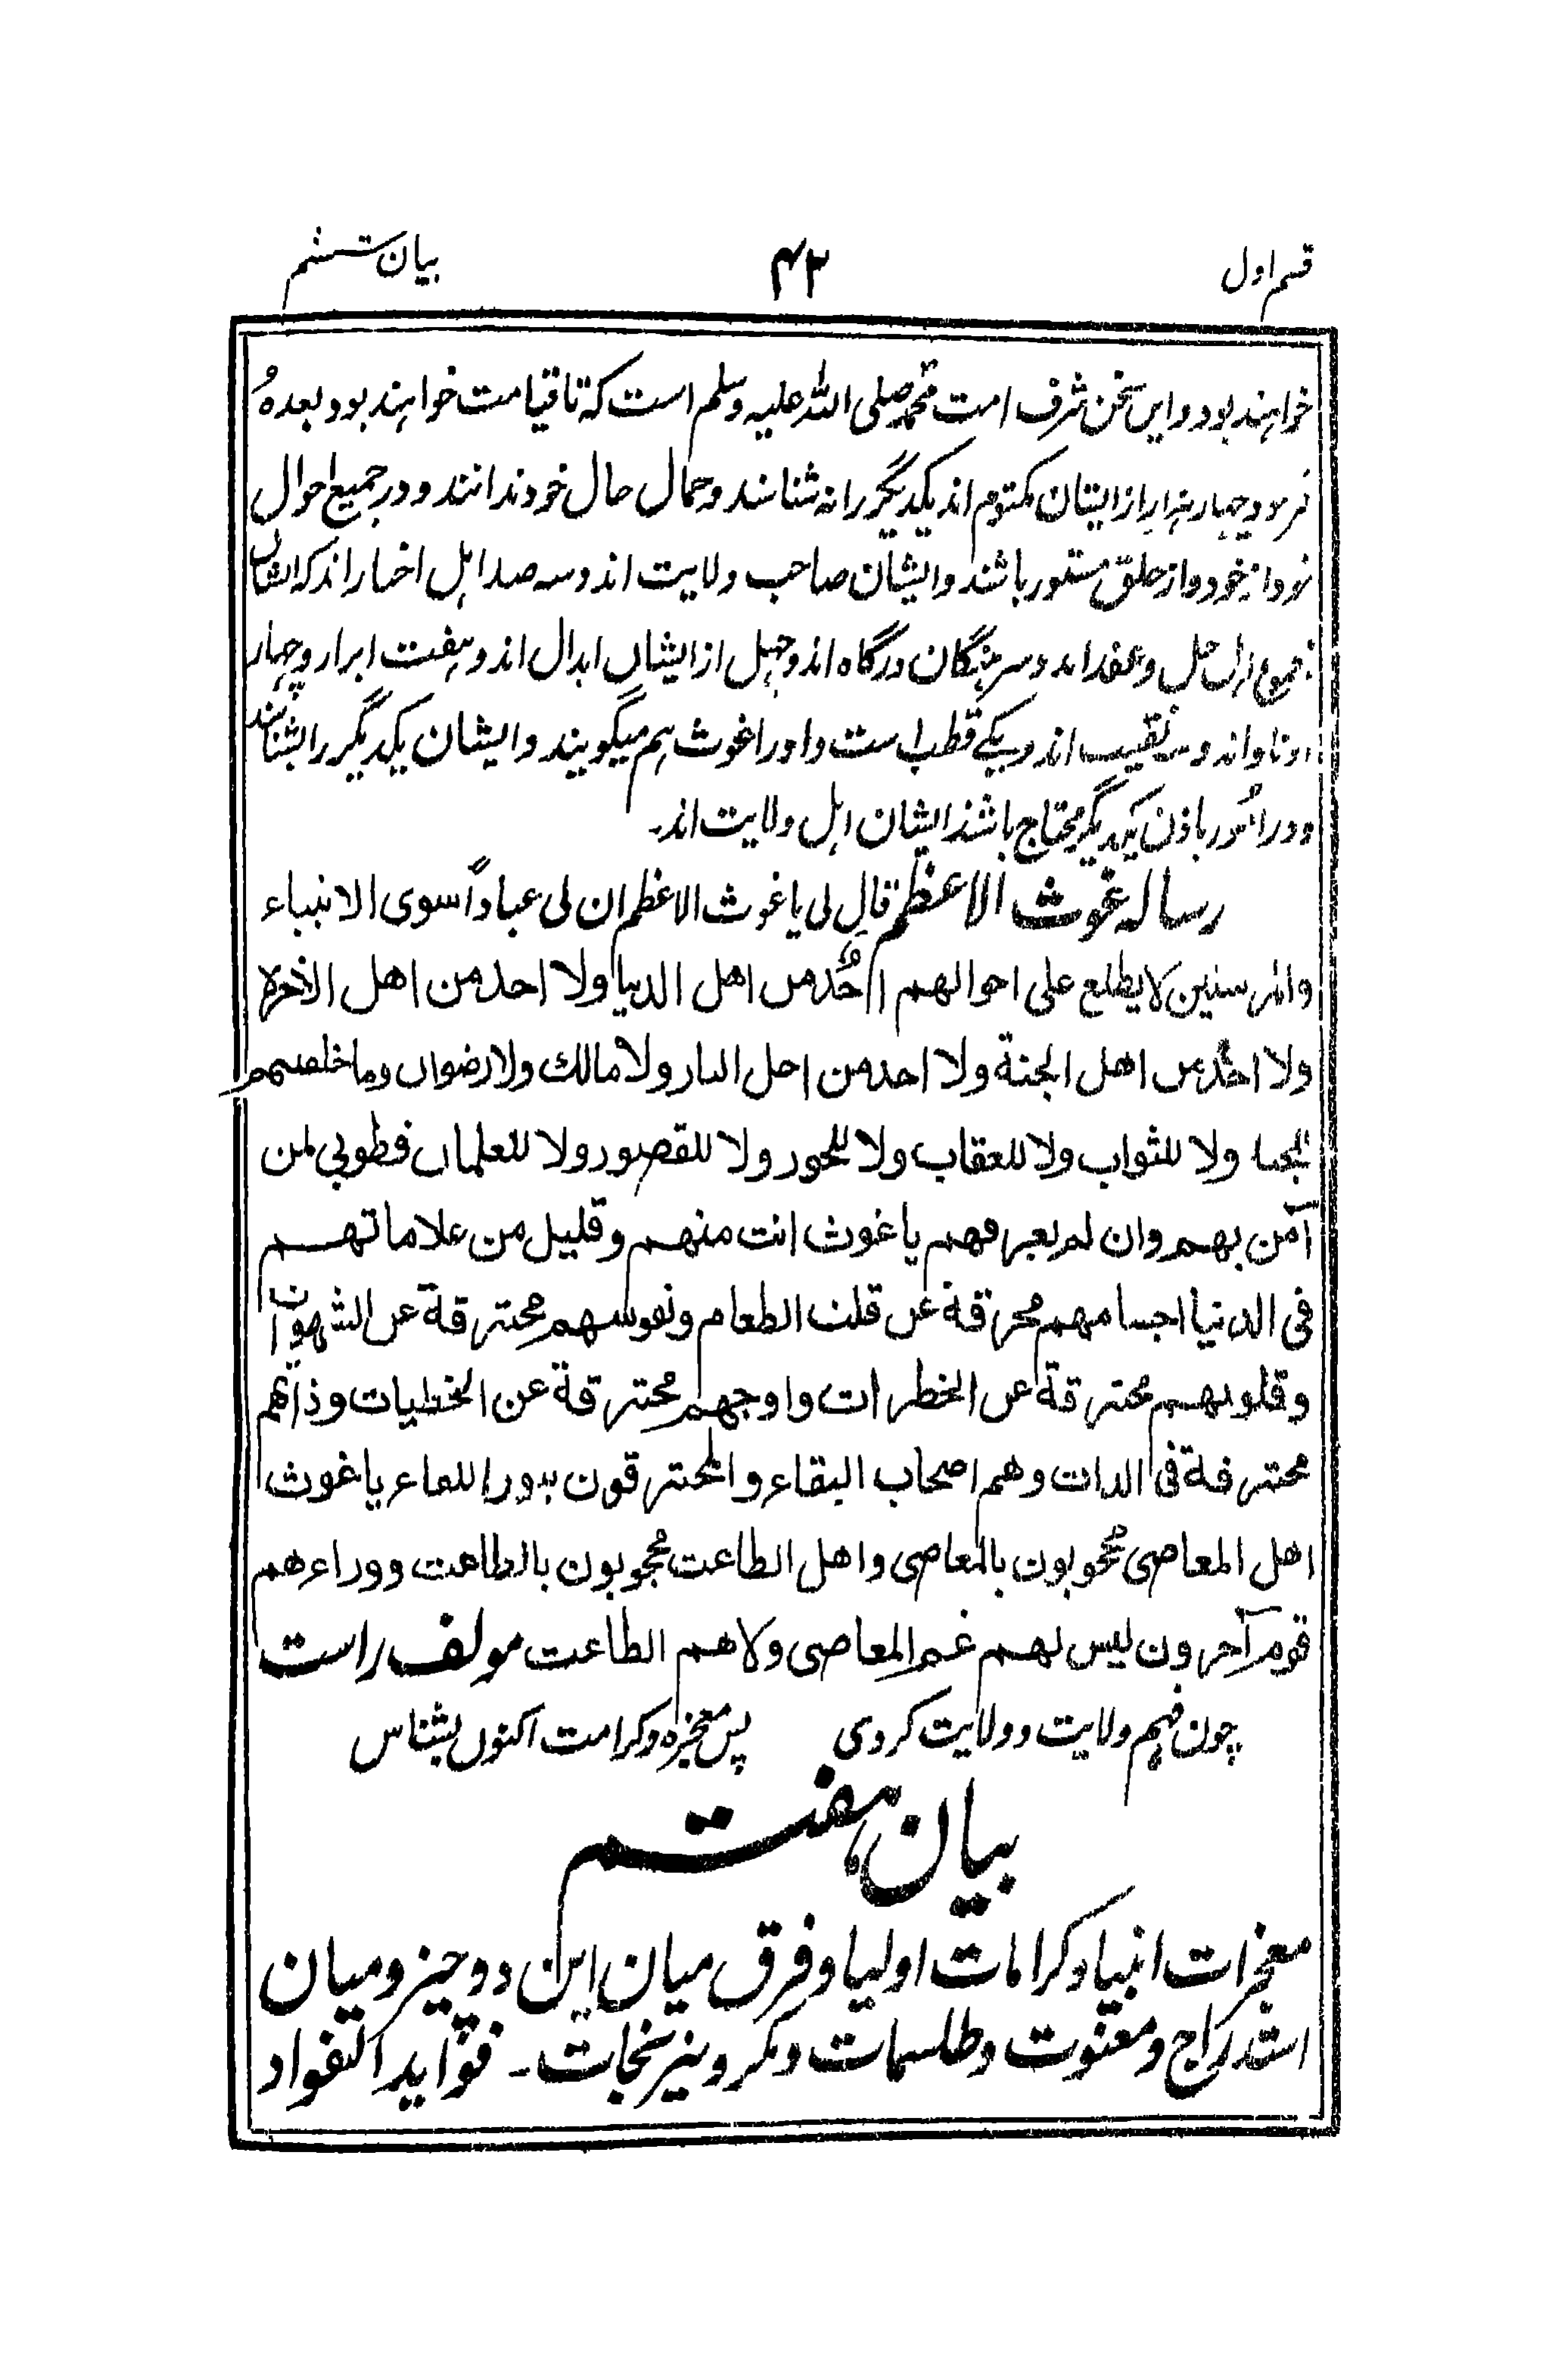 قسم اول ۴۲ بیان ششم
خواہند بود و ایں سخن شرف امت محمد صلی اللہ علیہ وسلم است کہ تا قیامت خواہند بود بعدہٗ
فرمود چہار ہزار از ایشان مکتوم اند یکدیگر را نہ شناسند و جمال حال خود ندانند و در جمیع احوال
خود از خود و از خلق مستور باشند و ایشان صاحب ولایت اند و سہ صد اہل اخیار اند کہ ایشاں
مجموع اہل حل و عقد اند و سرہنگان درگاہ اند و چہل از ایشاں ابدال اند و ہفت ابرار و چہار
اوتاد اند و سہ نقیب اند و یکے قطب است و او را غوث ہم میگویند و ایشان یکدیگر را بشناسند
و در امور باذن یکدیگر محتاج باشند ایشان اہل ولایت اند۔
رسالہ غوث الاعظم قال لی یا غوث الاعظم ان لی عباداً سوی الانبیاء
والمرسلین لا یطلع علی احوالهم احدٌ من اهل الدنیا ولا احد من اهل الآخرة
ولا احدٌ من اهل الجنة ولا احد من اهل النار ولا مالك ولا رضوان وما خلقتهم
للجنة ولا للثواب ولا للعقاب ولا للحور ولا للقصور ولا للغلمان فطوبی لمن
آمن بهم وان لم یعرفهم یا غوث انت منهم وقلیل من علاماتهم
فی الدنیا اجسامهم محرقة عن قلت الطعام ونفوسهم محترقة عن الشهوات
وقلوبهم محترقة عن الخطرات واوجهم محترقة عن الخطیات وذاتهم
محترقة فی الذات وهم اصحاب البقاء والمحترقون بنور اللقاء یا غوث
اهل المعاصی محجوبون بالمعاصی واهل الطاعت محجوبون بالطاعت ووراءهم
قوم آخرون لیس لهم غم المعاصی ولا هم الطاعت مولف راست
چون فہم ولایت و ولایت کردی پس معجزہ و کرامت اکنوں بشناس
بیان ہفتم
معجزات انبیا و کرامات اولیا و فرق میان این دو چیز و میان
استدراج و معونت و طلسمات و مکر و نیرنجات۔ فواید الفواد